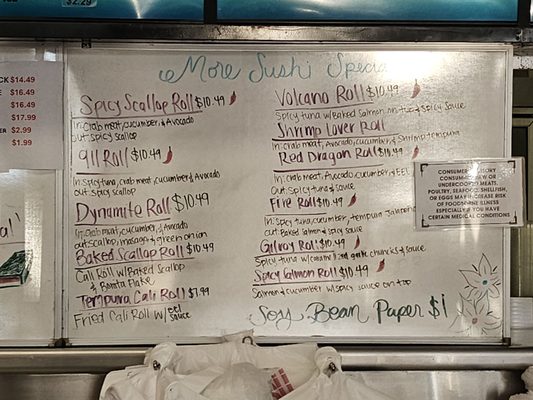 $2.29
CK $14.49
$16.49
$16.49
$17.99
R $2.99
$1.99
More Sushi Specia
Spicy Scallop Roll $10.49
In: crab meat, cucumber, & Avocado
out: spicy scallop
911 Roll $10.49
In: spicy tuna, crab meat, cucumber & Avocado
Out: spicy scallop
Dynamite Roll $10.49
In: crab meat, cucumber & Avocado
out: scallop, masago & green onion
Baked Scallop Roll $10.49
Cali Roll w/ Baked Scallop
& Bonita flake
Tempura Cali Roll $7.99
Fried Cali Roll w/ eel sauce
Volcano Roll $10.49
Spicy tuna w/ Baked Salmon on top & spicy sauce
Shrimp Lover Roll
In: crab meat, Avocado, cucumber & Shrimp tempura
Red Dragon Roll $10.49
In: crab meat, Avocado, cucumber & Eel
Out: Spicy tuna & sauce
Fire Roll $10.49
In: Spicy tuna, cucumber, tempura Jalapeno
out: Baked Salmon & spicy sauce
Gilroy Roll $10.49
Spicy tuna w/ garlic chunks & sauce
Spicy Salmon Roll $10.49
Salmon & cucumber w/ spicy sauce on top
Soy Bean Paper $1
CONSUMER ADVISORY
CONSUMING RAW OR
UNDERCOOKED MEATS,
POULTRY, SEAFOOD, SHELLFISH,
OR EGGS MAY INCREASE RISK
OF FOODBORNE ILLNESS
ESPECIALLY IF YOU HAVE
CERTAIN MEDICAL CONDITIONS